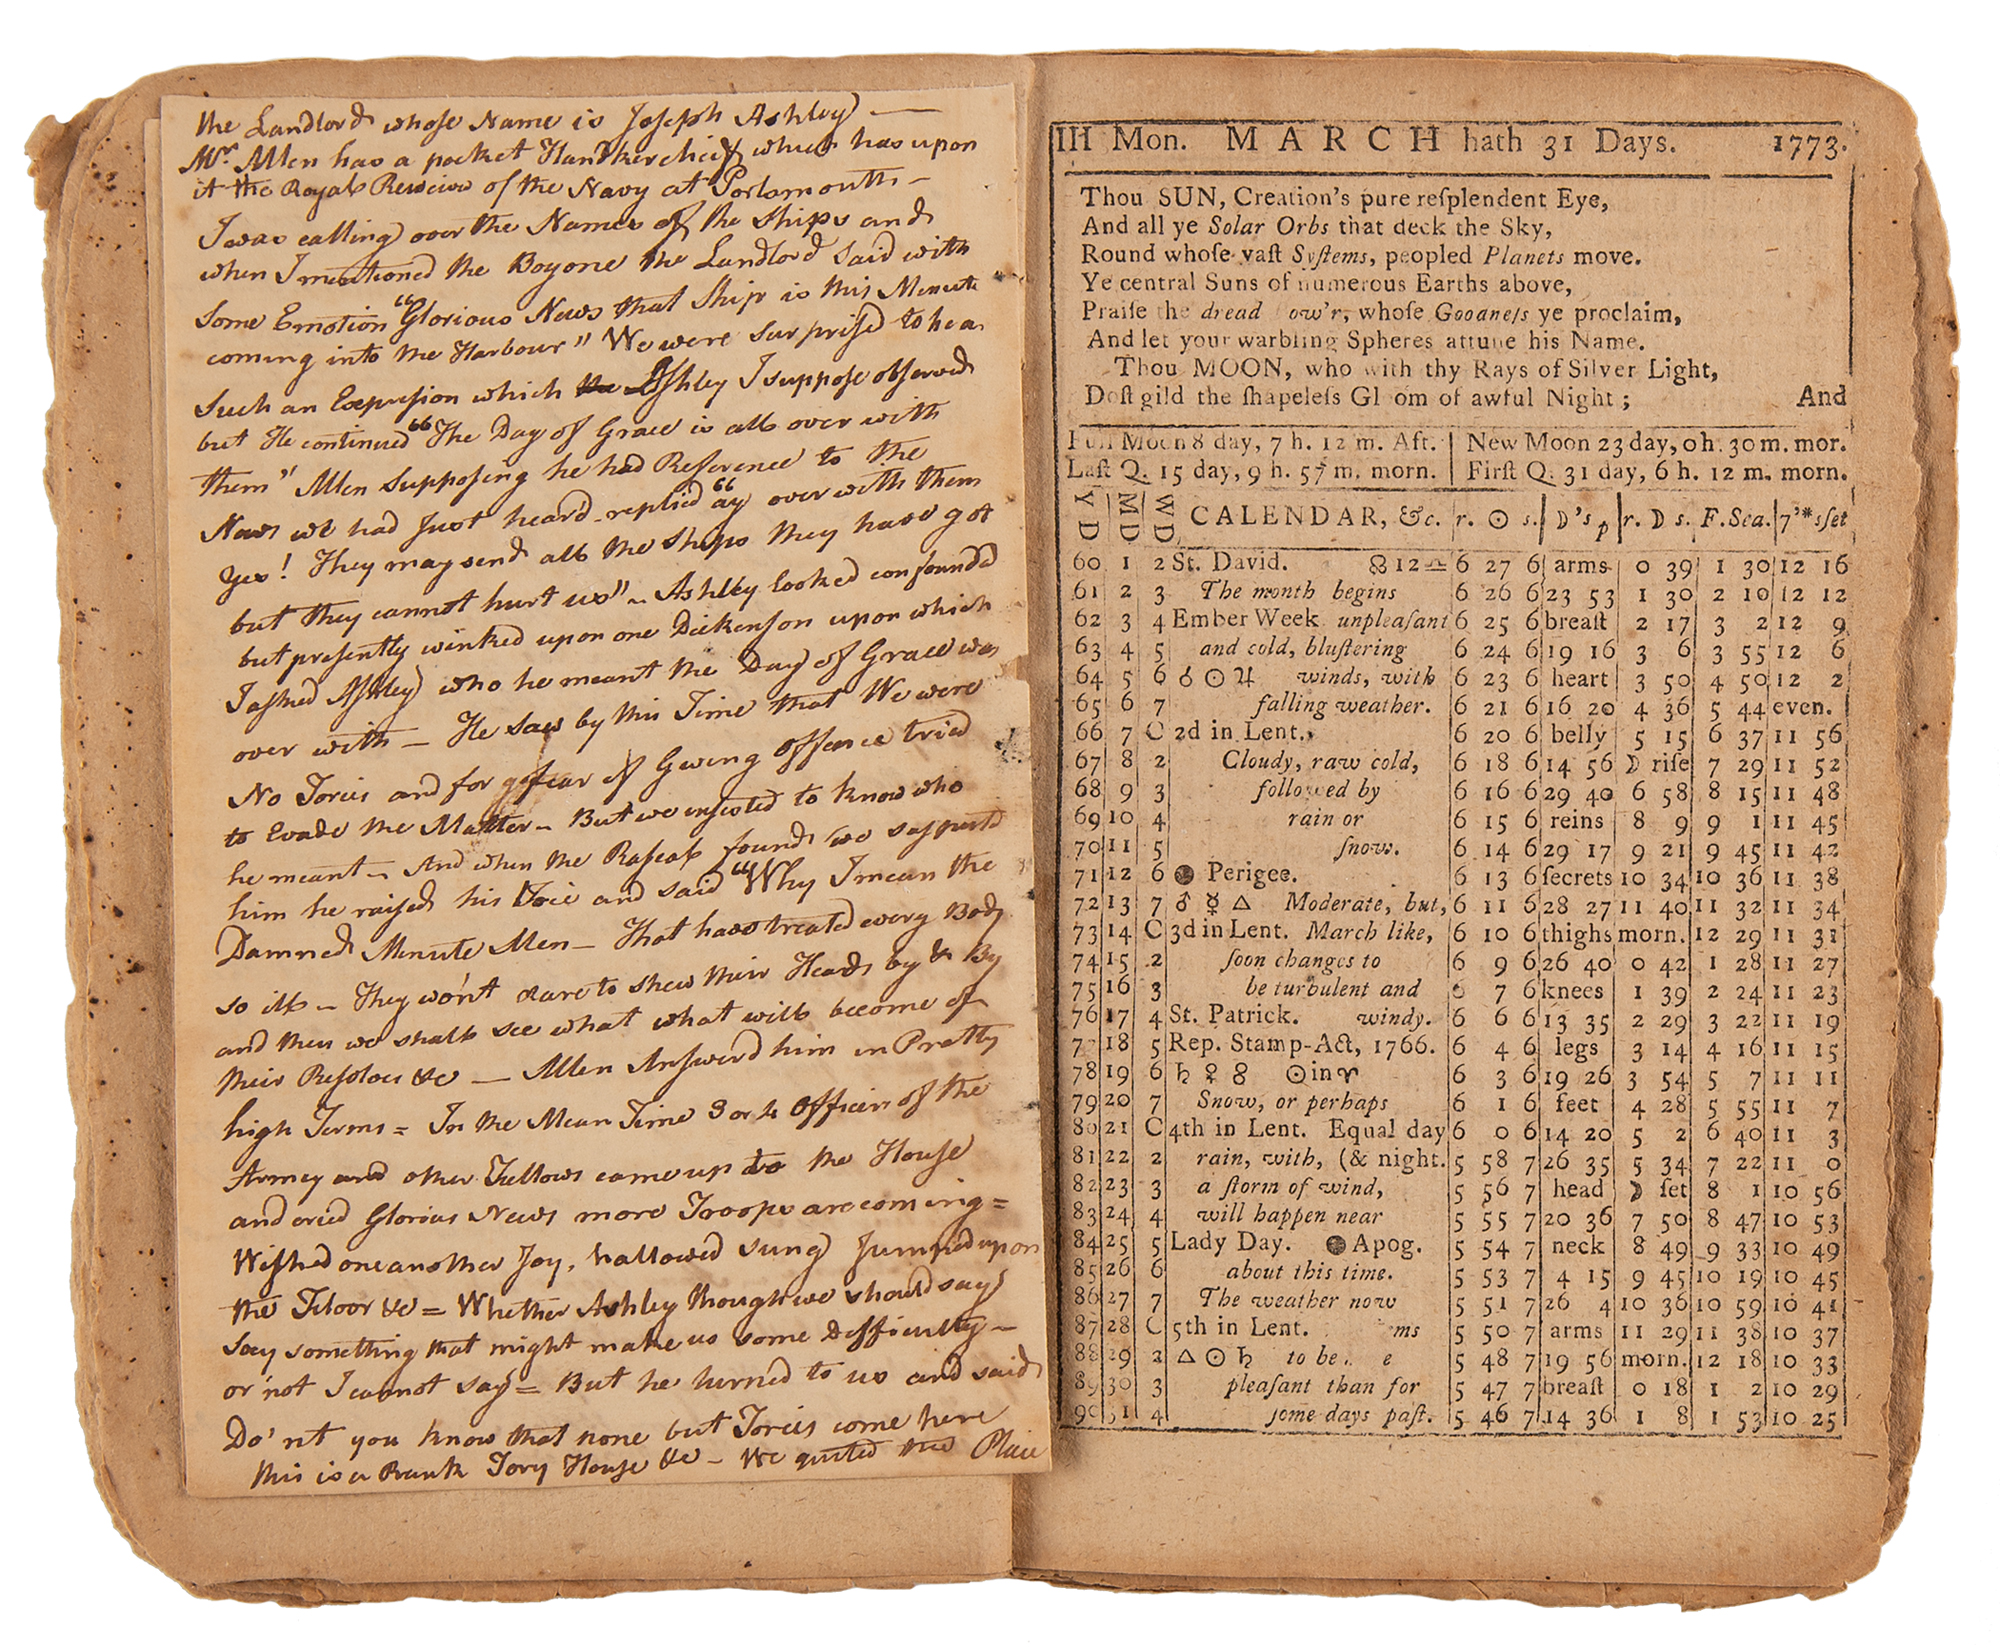 the Landlord whose Name is Joseph Ashley —
Mr. Allen has a pocket Handkercheif which has upon
it the Royal Review of the Navy at Portsmouth —
I was calling over the Names of the Ships and
when I mentioned the Boyone the Landlord said with
some Emotion "Glorious News that Ship is this Menute
coming into the Harbour" We were surprised to hea
such an Expression which the Ashley I suppose observed
but He continued "The Day of Grace is all over with
them" Allen supposing he had Reference to the
News we had just heard - replied "ay over with them
yes! They may send all the Ships they have got
but they cannot hurt us" - Ashley looked confounded
but presently winked upon one Dickenson upon which
I asked Ashley who he meant the Day of Grace was
over with — He saw by this Time that We were
No Tories and for fear of Giveng offence tried
to Evade the Matter - But we insisted to know who
he meant - And when the Rascal found we suspected
him he raised his Voice and said "Why I mean the
Damned Menute Men — That have treated every Body
so ill - They won't dare to shew their Heads by & By
and then we shall see what what will become of
their Resolves &c — Allen Answerd him in Pretty
high Terms = In the Mean Time 3 or 4 Officers of the
Armey and other Fellows came up to the House
and cried Glorius News more Troops are coming =
Wished one another Joy, hallowed sung Jumped upon
the Floor &c = Whether Ashley though we should say
say something that might make us some Difficulty —
or not I cannot say = But he turned to us and said
Do'nt you know that none but Tories come here
this is a Rank Tory House &c - We quitted the Place
III Mon. MARCH hath 31 Days. 1773.
Thou SUN, Creation's pure reſplendent Eye,
And all ye Solar Orbs that deck the Sky,
Round whoſe vaſt Syſtems, peopled Planets move.
Ye central Suns of numerous Earths above,
Praiſe the dread ow'r, whoſe Gooaneſs ye proclaim,
And let your warbling Spheres attune his Name.
Thou MOON, who with thy Rays of Silver Light,
Doſt gild the ſhapeleſs Gl om of awful Night; And
Full Moon 8 day, 7 h. 12 m. Aft. New Moon 23 day, 0 h. 30 m. mor.
Laſt Q. 15 day, 9 h. 57 m. morn. Firſt Q. 31 day, 6 h. 12 m. morn.
Y D M D W D CALENDAR, &c. r. ☉ s. ☽'s p r. ☽ s. F.Sea. 7*s ſet
60 1 2 St. David. ☊ 12 ♎ 6 27 6 arms 0 39 1 30 12 16
61 2 3 The month begins 6 26 6 23 53 1 30 2 10 12 12
62 3 4 Ember Week unpleaſant 6 25 6 breaſt 2 17 3 2 12 9
63 4 5 and cold, bluſtering 6 24 6 19 16 3 6 3 55 12 6
64 5 6 ☌ ☉ ♃ winds, with 6 23 6 heart 3 50 4 50 12 2
65 6 7 falling weather. 6 21 6 16 20 4 36 5 44 even.
66 7 C 2d in Lent. 6 20 6 belly 5 15 6 37 11 56
67 8 2 Cloudy, raw cold, 6 18 6 14 56 ☽ riſe 7 29 11 52
68 9 3 followed by 6 16 6 29 40 6 58 8 15 11 48
69 10 4 rain or 6 15 6 reins 8 9 9 1 11 45
70 11 5 ſnow. 6 14 6 29 17 9 21 9 45 11 42
71 12 6 ● Perigee. 6 13 6 ſecrets 10 34 10 36 11 38
72 13 7 ♂ ☿ △ Moderate, but, 6 11 6 28 27 11 40 11 32 11 34
73 14 C 3d in Lent. March like, 6 10 6 thighs morn. 12 29 11 31
74 15 2 ſoon changes to 6 9 6 26 40 0 42 1 28 11 27
75 16 3 be turbulent and 6 7 6 knees 1 39 2 24 11 23
76 17 4 St. Patrick. windy. 6 6 6 13 35 2 29 3 22 11 19
77 18 5 Rep. Stamp-Act, 1766. 6 4 6 legs 3 14 4 16 11 15
78 19 6 ♄ ♀ ☍ ☉ in ♈ 6 3 6 19 26 3 54 5 7 11 11
79 20 7 Snow, or perhaps 6 1 6 feet 4 28 5 55 11 7
80 21 C 4th in Lent. Equal day 6 0 6 14 20 5 2 6 40 11 3
81 22 2 rain, with, (& night. 5 58 7 26 35 5 34 7 22 11 0
82 23 3 a ſtorm of wind, 5 56 7 head ☽ ſet 8 1 10 56
83 24 4 will happen near 5 55 7 20 36 7 50 8 47 10 53
84 25 5 Lady Day. ● Apog. 5 54 7 neck 8 49 9 33 10 49
85 26 6 about this time. 5 53 7 4 15 9 45 10 19 10 45
86 27 7 The weather now 5 51 7 26 4 10 36 10 59 10 41
87 28 C 5th in Lent. ms 5 50 7 arms 11 29 11 38 10 37
88 29 2 △ ☉ ♄ to be e 5 48 7 19 56 morn. 12 18 10 33
89 30 3 pleaſant than for 5 47 7 breaſt 0 18 1 2 10 29
90 31 4 ſome days paſt. 5 46 7 14 36 1 8 1 53 10 25